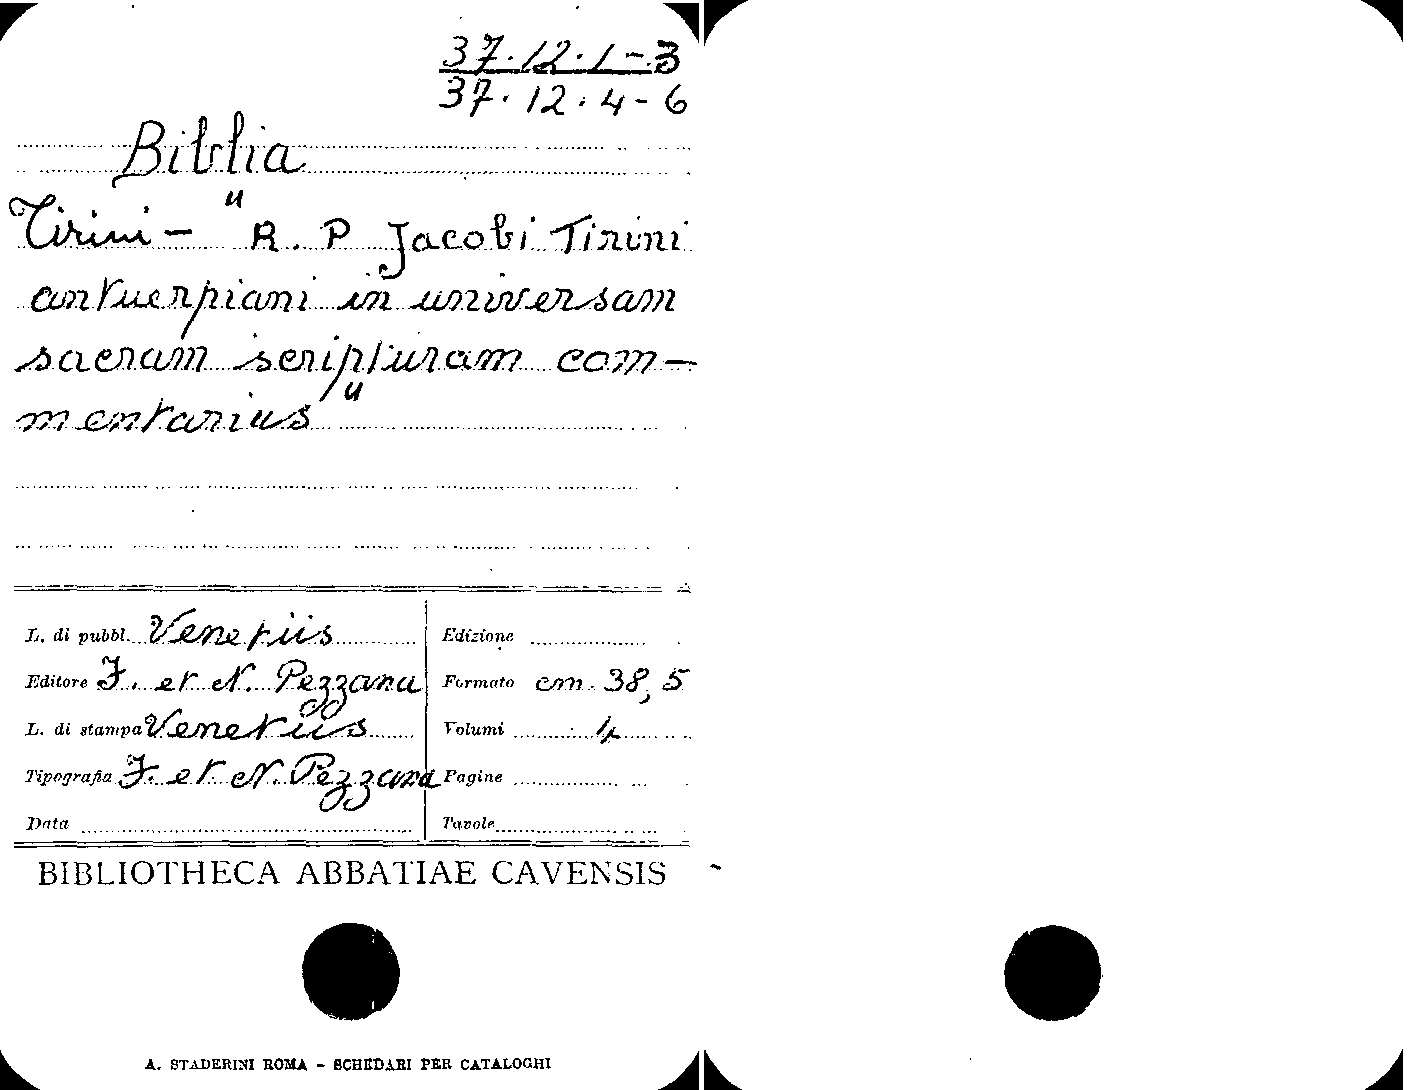 37.12.1-3
37.12.4-6
Biblia
Tirini - "R. P Jacobi Tirini
antuerpiani in universam
sacram scripturam com-
mentarius"
L. di pubbl. Venetiis
Edizione
Editore F. et N. Pezzana
Formato cm. 38,5
L. di stampa Venetiis
Volumi 4
Tipografia F. et N. Pezzana
Pagine
Data
Tavole
BIBLIOTHECA ABBATIAE CAVENSIS
A. STADERINI ROMA - SCHEDARI PER CATALOGHI